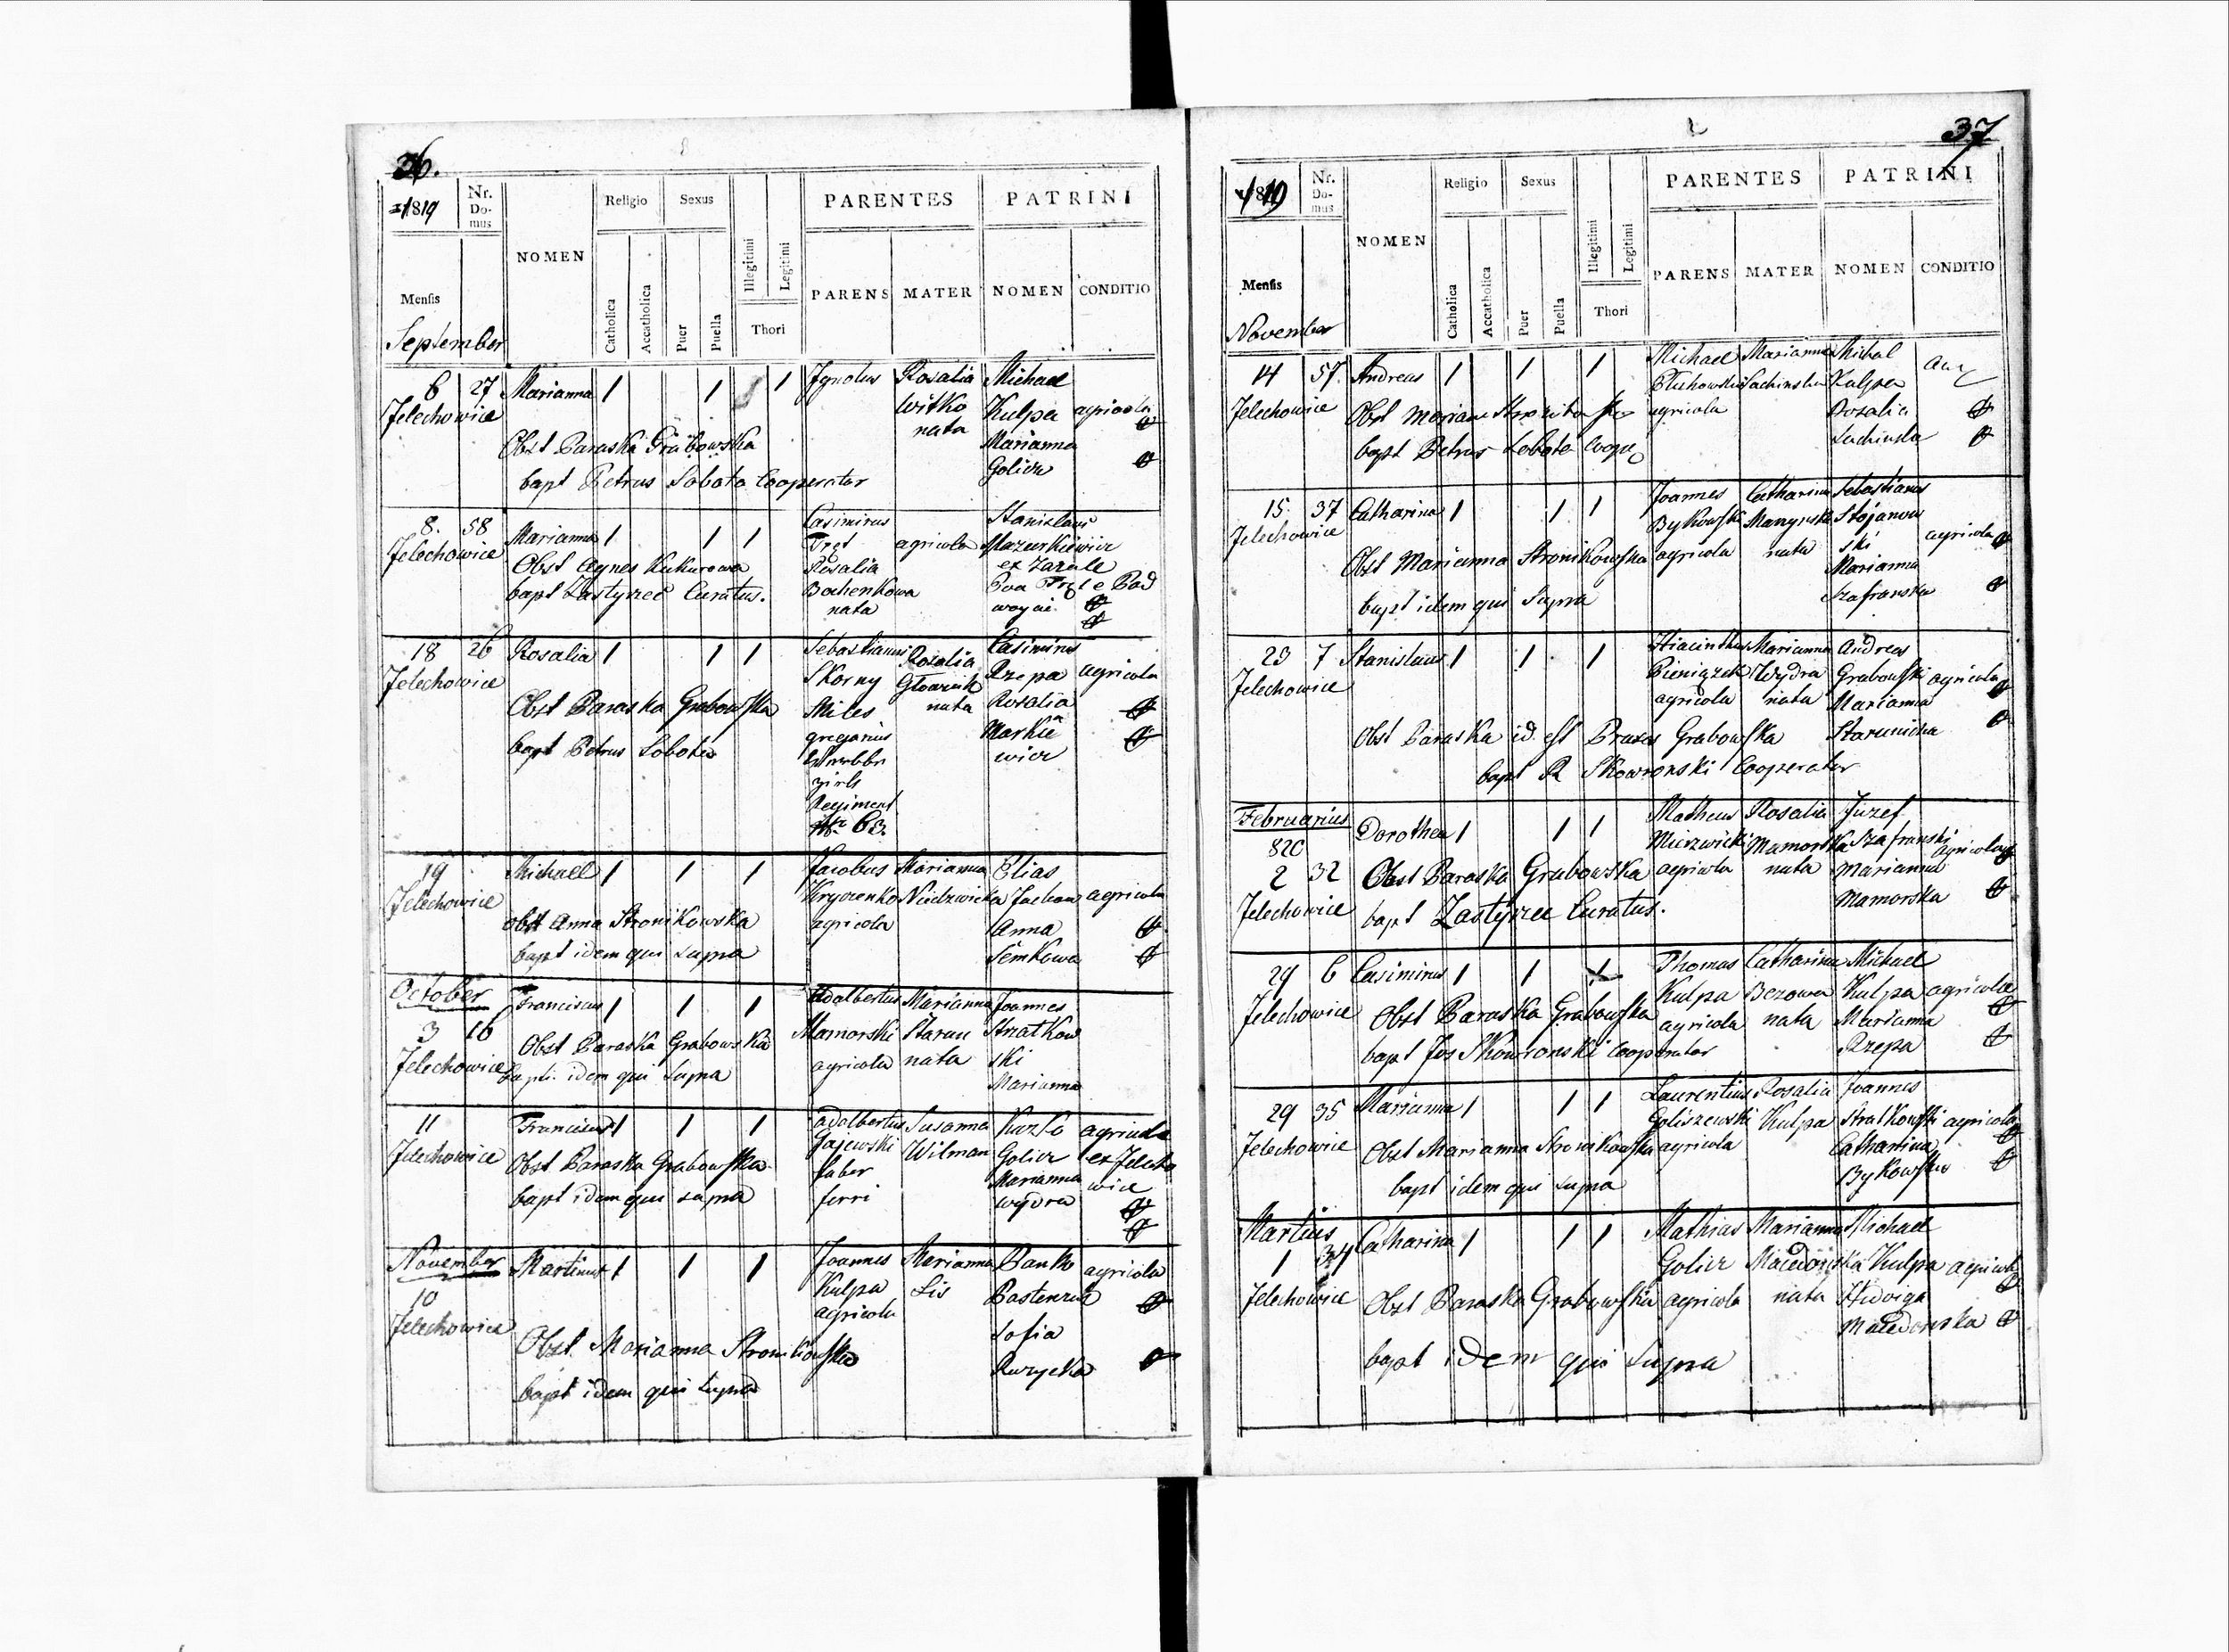 36.
1819
Nr. Domus
NOMEN
Religio
Sexus
PARENTES
PATRINI
Mensis
Catholica
Accatholica
Puer
Puella
Illegitimi
Legitimi
Thori
PARENS
MATER
NOMEN
CONDITIO
September
6 27 Marianna 1 1 1 Ignotus Rosalia Michael
Jelechowice Witko Kulpa agricola
nata Marianna
Obst Paraska Grabowska
Golicz
bapt Petrus Sobota Cooperator
8. 58 Marianna 1 1 1 Casimirus Stanislaus
Jelechowice agricola Mazurkiewicz
Obst Agnes Kukurowa Rosalia ex Zazule
bapt Zastyrzec Curatus. Bochenkowa
nata
18 26 Rosalia 1 1 1 Sebastianus Rosalia Casimirus
Jelechowice Skorny Rzepa agricola
Obst Paraska Grabowska Miles nata Rosalia
gregarius Markie
bapt Petrus Sobota wicz
Regiment
Nr 63
19 Michael 1 1 1 Jacobus Marianna Elias
Jelechowice Niedzwicka agricola
Obst Anna Stronikowska agricola Anna
bapt idem qui supra Semkowa
October
3 16 Franciscus 1 1 1 Adalbertus Marianna Joannes
Jelechowice Mamorski Staran Stratkow
Obst Paraska Grabowska agricola nata ski
bapt. idem qui supra Marianna
11 Franciscus 1 1 1 Adalbertus Susanna
Jelechowice Gajewski Wilman Golicz agricola
Obst Paraska Grabowska faber Marianna ex Jelecho
bapt idem qui supra ferri Wydra wice
November
10 Martinus 1 1 1 Joannes Marianna
Jelechowice Kulpa Lis agricola
agricola
Obst Marianna Stronikowska Sofia
bapt idem qui supra
37
1819
Nr. Domus
NOMEN
Religio
Sexus
PARENTES
PATRINI
Mensis
Catholica
Accatholica
Puer
Puella
Illegitimi
Legitimi
Thori
PARENS
MATER
NOMEN
CONDITIO
November
14 57. Andreas 1 1 1 Michael Marianna Michal
Jelechowice Kulpa
agricola Rosalia
bapt Petrus Sobota
15. 37 Catharina 1 1 1 Joannes Catharina Sebastianus
Jelechowice Bykowski Stojanow
ski agricola
Obst Marianna Stronikowska agricola nata Marianna
bapt idem qui supra Szafranska
23 7 Stanislaus 1 1 1 Hiacinthus Marianna Andreas
Jelechowice Pieniązek Wydra Grabowski agricola
agricola nata Marianna
Obst Paraska id est Grabowska
bapt Skowronski Cooperator
Februarius
820
2 32 Dorothea 1 1 1 Matheus Rosalia Juzef
Jelechowice Mamorska Szafranski agricola
Obst Paraska Grabowska agricola nata Marianna
bapt Zastyrzec Curatus. Mamorska
29 6 Casimirus 1 1 1 Thomas Catharina Michael
Jelechowice Kulpa Bezowa Kulpa agricola
Obst Paraska Grabowska agricola nata Marianna
bapt Jos Skowronski Cooperator Rzepa
29 35 Marianna 1 1 1 Laurentius Rosalia Joannes
Jelechowice Goliszewski Kulpa Stratkowski agricola
Obst Marianna Stronikowska agricola Catharina
bapt idem qui supra Bykowska
Martius
1 34 Catharina 1 1 1 Mathias Marianna Michael
Jelechowice Golicz Macedonska Kulpa agricola
Obst Paraska Grabowska agricola nata Hedwiga
Macedonska
bapt idem qui supra